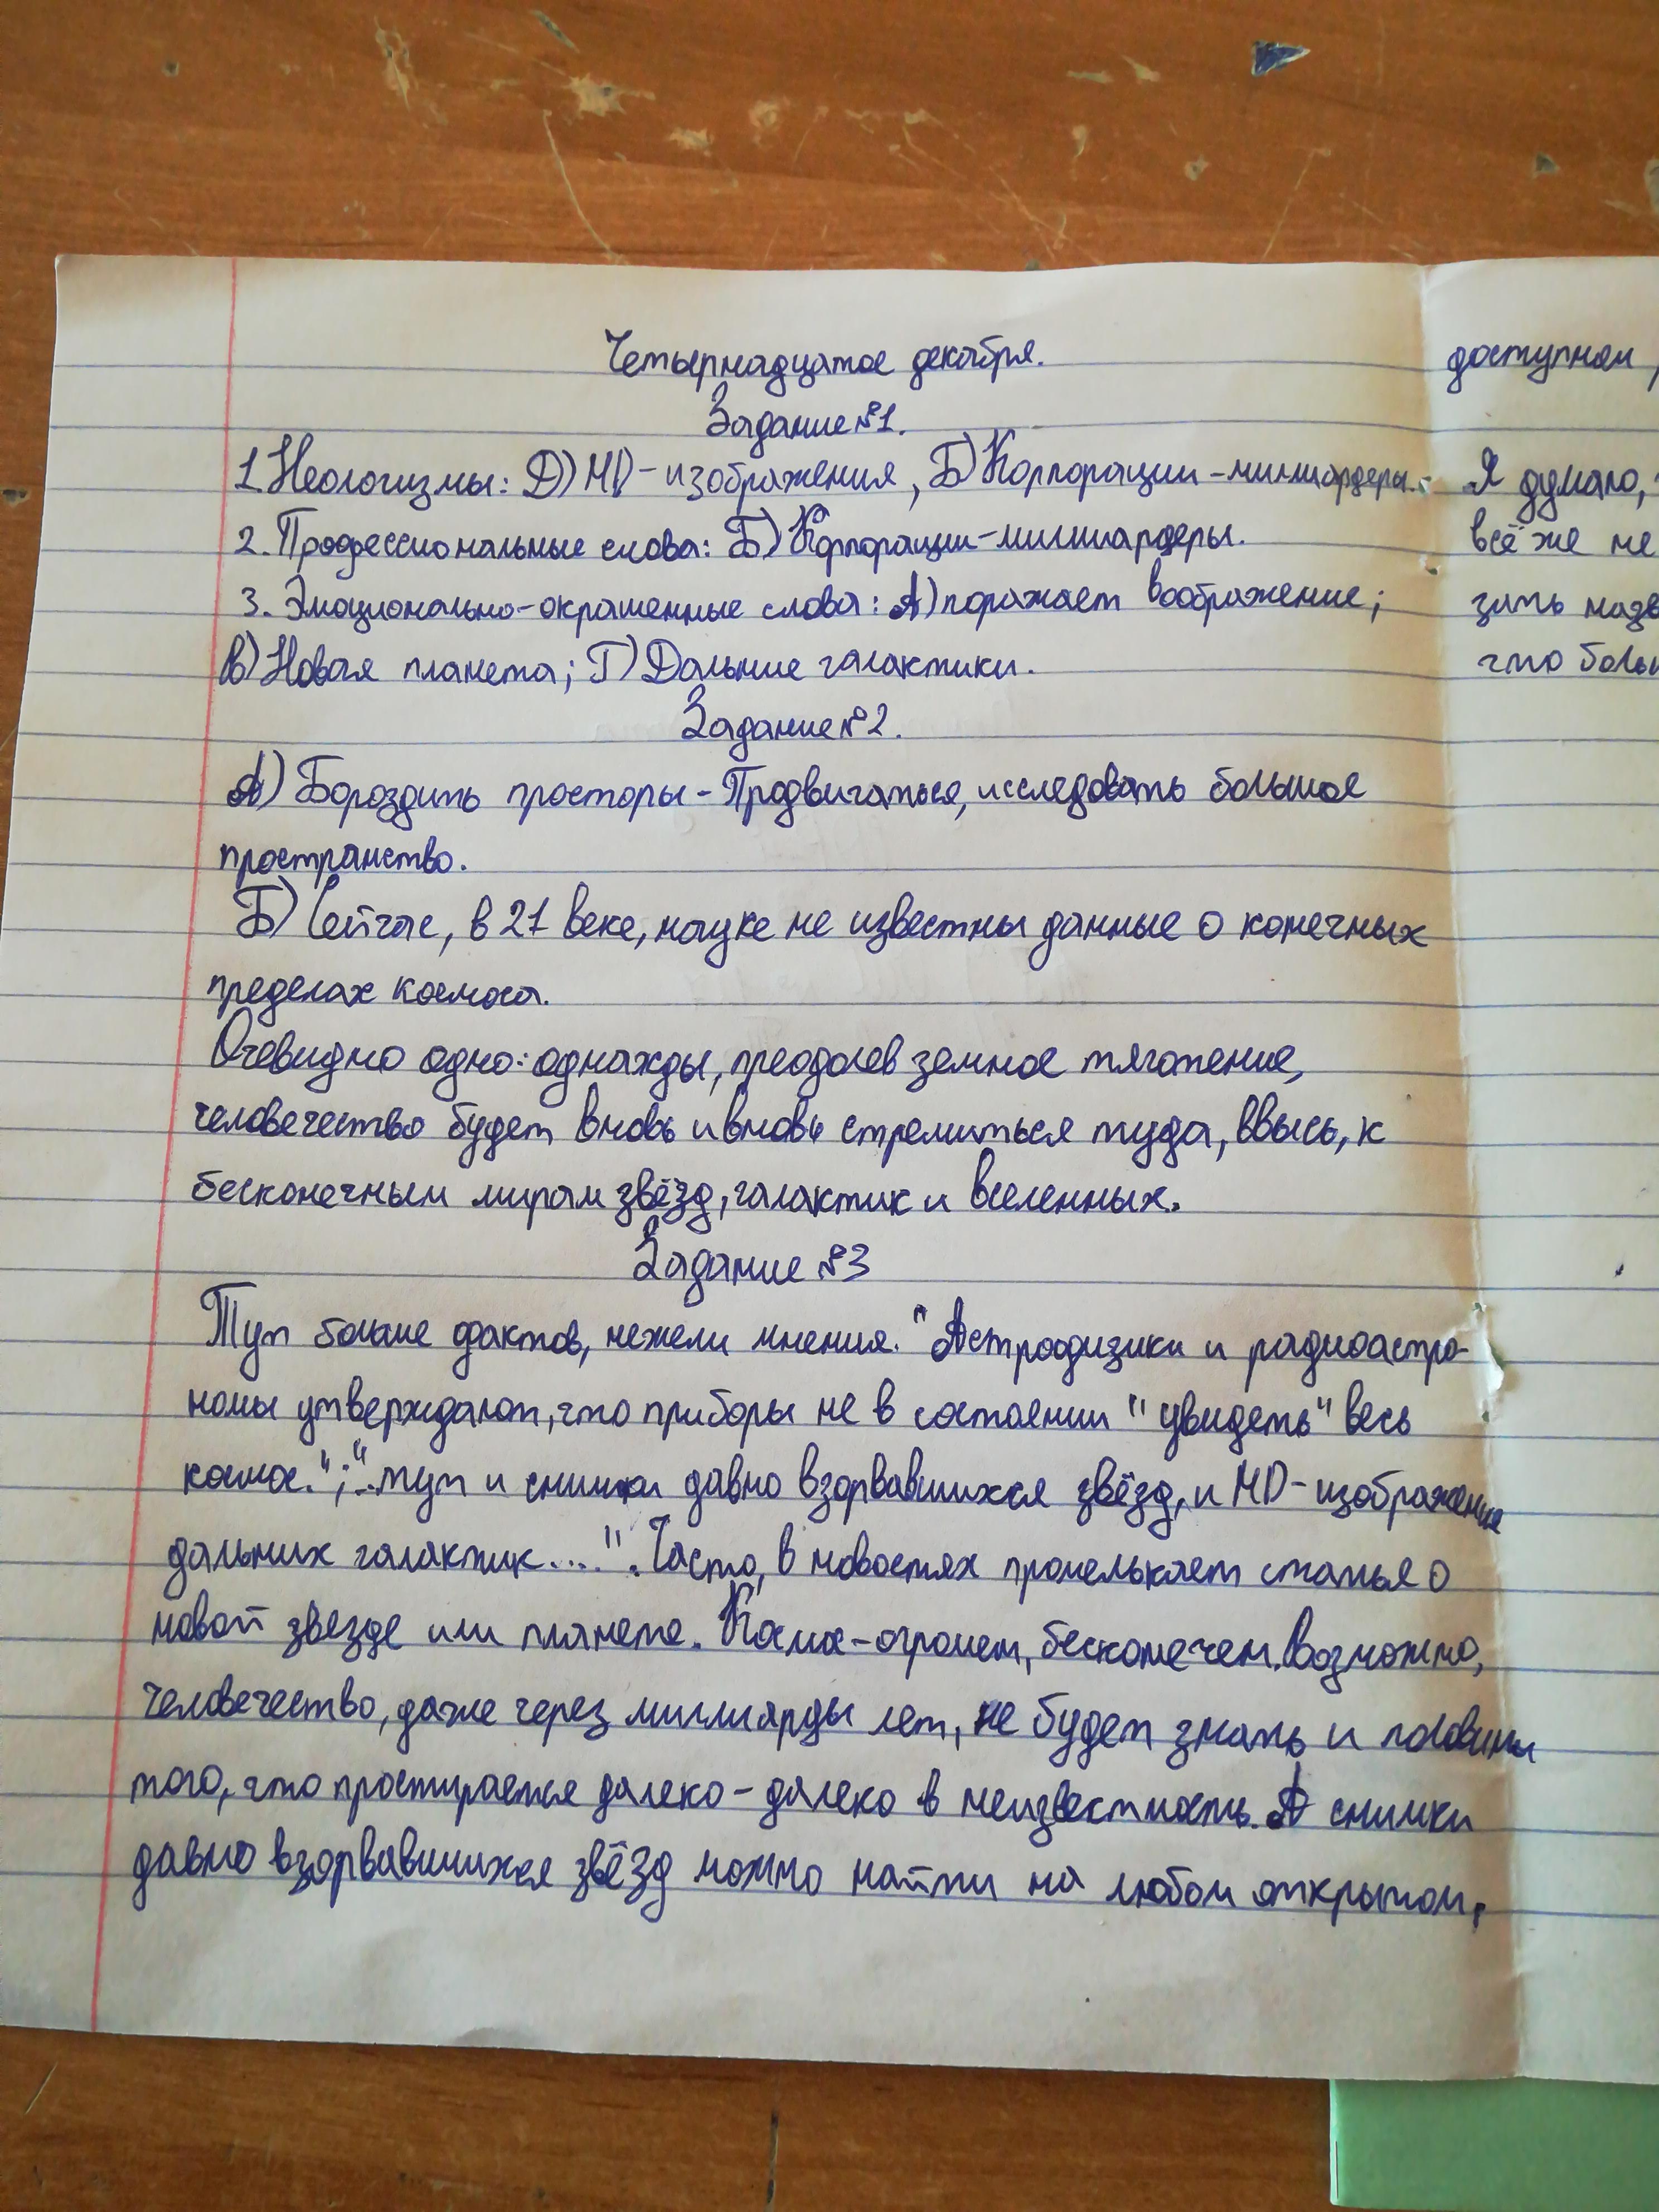 Четырнадцатое декабря.
Задание №1.
1. Неологизмы: Д) HD-изображения, Б) Корпорации-миллиардеры.
2. Профессиональные слова: Б) Корпорации-миллиардеры.
3. Эмоционально-окрашенные слова: А) поражает воображение;
В) Новая планета; Г) Дальние галактики.
Задание №2.
А) Бороздить просторы - Продвигаться, исследовать большое
пространство.
Б) Сейчас, в 21 веке, науке не известны данные о конечных
пределах космоса.
Очевидно одно: однажды, преодолев земное тяготение,
человечество будет вновь и вновь стремиться туда, ввысь, к
бесконечным мирам звёзд, галактик и вселенных.
Задание №3
Тут больше фактов, нежели мнения. "Астрофизики и радиоастро-
номы утверждают, что приборы не в состоянии "увидеть" весь
космос."; "...тут и снимки давно взорвавшихся звёзд, и HD-изображения
дальних галактик....". Часто, в новостях промелькает статья о
новой звезде или планете. Космос - огромен, бесконечен. Возможно,
человечество, даже через миллиарды лет, не будет знать и половины
того, что простирается далеко-далеко в неизвестность. А снимки
давно взорвавшихся звёзд можно найти на любом открытом,
доступном
Я думаю,
всё же не
зать назв
что боль